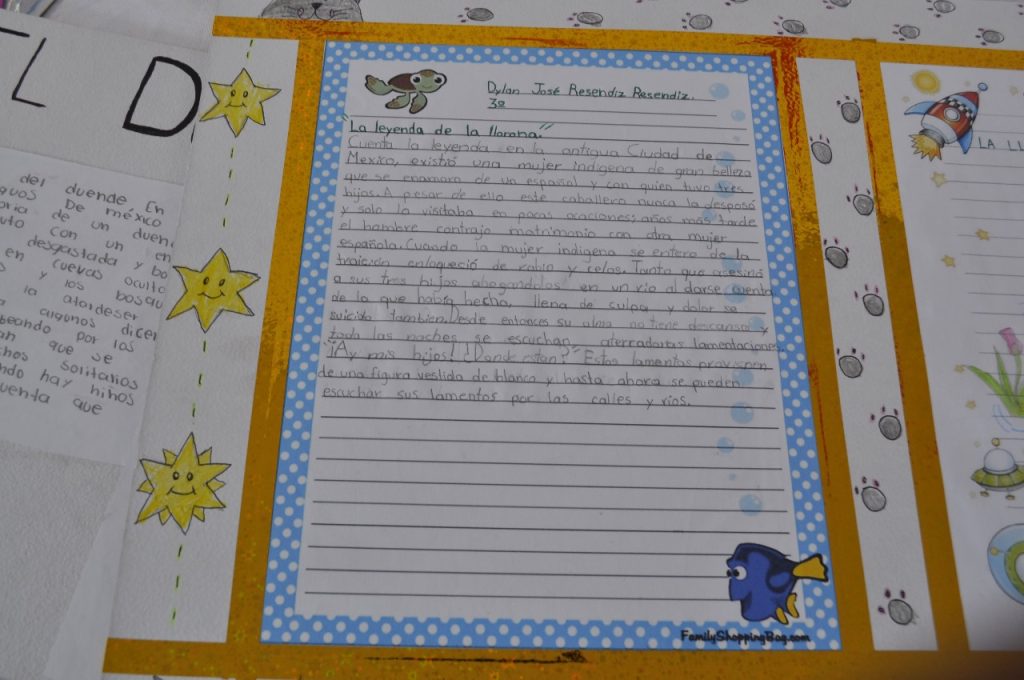 TL D
del duende En
De méxico
de un duen
con un en
desgastada y bo
en cuevas oculto
y los bosqu
la atardeser
algunos dicen
beando por los
an que se
solitarios
ndo hay niños
uenta que
Dylan José Resendiz Resendiz.
3º
"La leyenda de la llorona."
Cuenta la leyenda en la antigua Ciudad de
Mexico, existió una mujer indigena de gran belleza
que se enamora de un español y con quien tuvo tres
hijos. A pesar de ello este caballero nunca la desposó
y solo la visitaba en pocas ocaciones; años más tarde
el hombre contrajo matrimonio con otra mujer
española. Cuando la mujer indigena se entero de la
traición enloqueció de rabia y celos. Tanto que asesinó
a sus tres hijos ahogandolos en un rio al darse cuenta
de lo que había hecho, llena de culpa y dolor se
suicido tambien. Desde entonces su alma no tiene descanso y
toda las noches se escuchan aterradoras lamentaciones.
"¡Ay mis hijos! ¿Donde estan?" Estos lamentos provienen
de una figura vestida de blanco y hasta ahora se pueden
escuchar sus lamentos por las calles y rios.
FamilyShoppingBag.com
LA LL